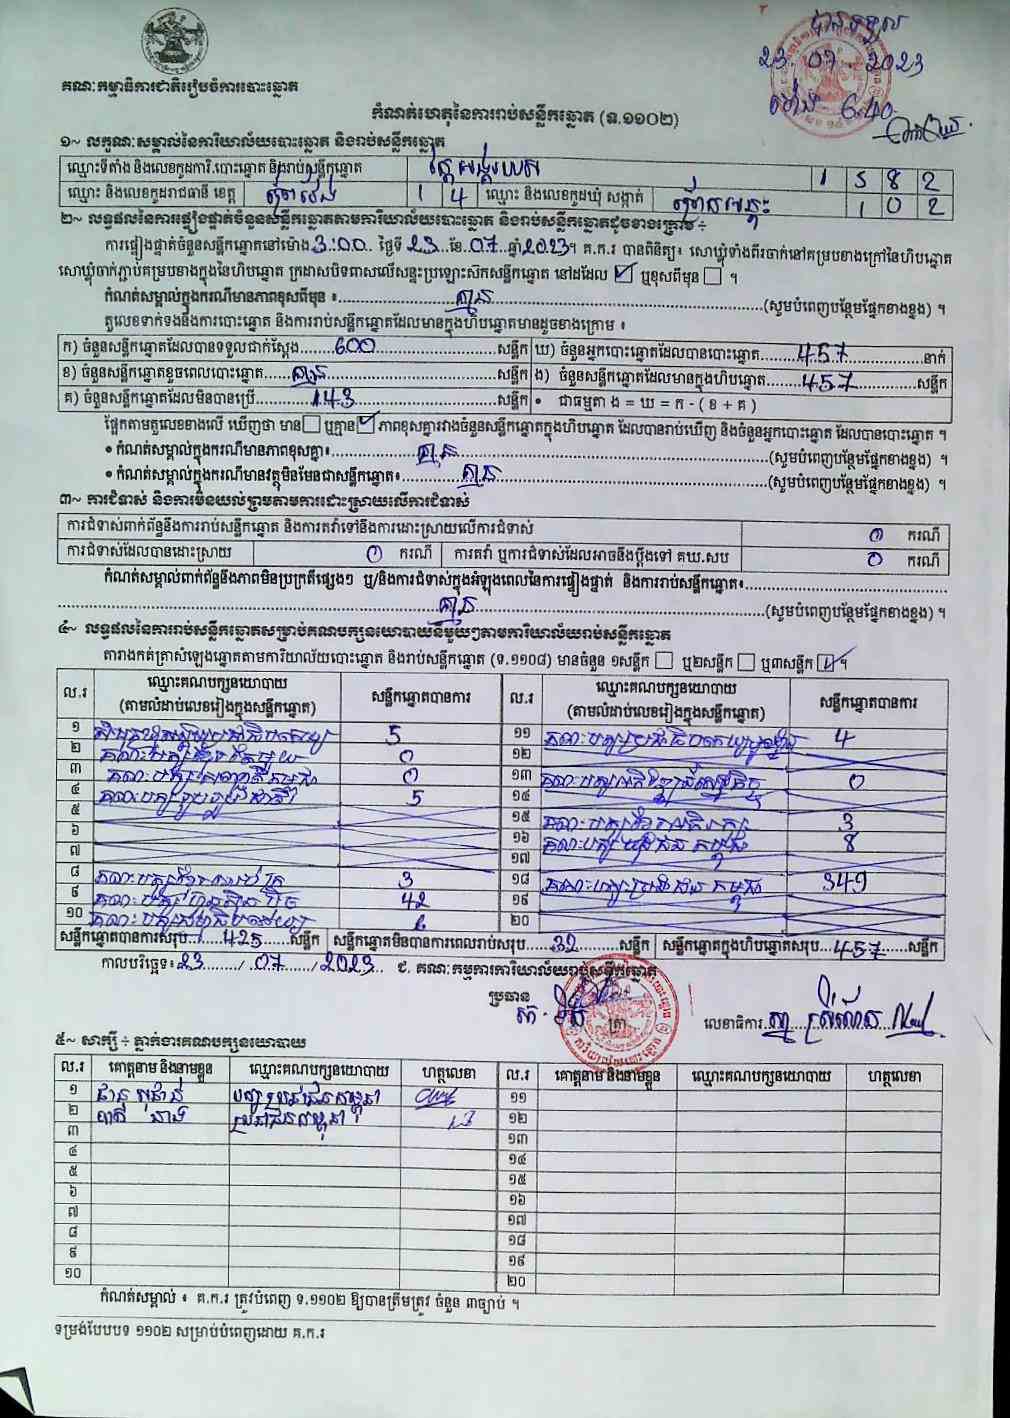 បានទទួល
23.07.2023
ម៉ោង 6:40
គណៈកម្មាធិការជាតិរៀបចំការបោះឆ្នោត
កំណត់ហេតុនៃការរាប់សន្លឹកឆ្នោត (ទ.១១០២)
១~ លក្ខណៈសម្គាល់នៃការិយាល័យបោះឆ្នោត និងរាប់សន្លឹកឆ្នោត
ឈ្មោះទីតាំង និងលេខកូដការិ.បោះឆ្នោត និងរាប់សន្លឹកឆ្នោត 1 5 8 2
ឈ្មោះ និងលេខកូដរាជធានី ខេត្ត ព្រៃវែង 1 4 ឈ្មោះ និងលេខកូដឃុំ សង្កាត់ 1 0 2
២~ លទ្ធផលនៃការផ្ទៀងផ្ទាត់ចំនួនសន្លឹកឆ្នោតតាមការិយាល័យបោះឆ្នោត និងរាប់សន្លឹកឆ្នោតដូចខាងក្រោម ÷
ការផ្ទៀងផ្ទាត់ចំនួនសន្លឹកឆ្នោតនៅម៉ោង 3:00 ថ្ងៃទី 23 ខែ 07 ឆ្នាំ 2023។ គ.ក.រ បានពិនិត្យ៖ សោឃ្លុំទាំងពីរចាក់នៅគម្របខាងក្រៅនៃហិបឆ្នោត
សោឃ្លុំចាក់ភ្ជាប់គម្របខាងក្នុងនៃហិបឆ្នោត ក្រដាសបិទពាសលើសន្ទះប្រឡោះស៊កសន្លឹកឆ្នោត នៅដដែល ☑ ឬខុសពីមុន ☐ ។
កំណត់សម្គាល់ក្នុងករណីមានភាពខុសពីមុន ៖ គ្មាន (សូមបំពេញបន្ថែមផ្នែកខាងខ្នង) ។
តួលេខទាក់ទងនឹងការបោះឆ្នោត និងការរាប់សន្លឹកឆ្នោតដែលមានក្នុងហិបឆ្នោតមានដូចខាងក្រោម ៖
ក) ចំនួនសន្លឹកឆ្នោតដែលបានទទួលជាក់ស្តែង 600 សន្លឹក ឃ) ចំនួនអ្នកបោះឆ្នោតដែលបានបោះឆ្នោត 457 នាក់
ខ) ចំនួនសន្លឹកឆ្នោតខូចពេលបោះឆ្នោត គ្មាន សន្លឹក ង) ចំនួនសន្លឹកឆ្នោតដែលមានក្នុងហិបឆ្នោត 457 សន្លឹក
គ) ចំនួនសន្លឹកឆ្នោតដែលមិនបានប្រើ 143 សន្លឹក • ជាធម្មតា ង = ឃ = ក - ( ខ + គ )
ផ្អែកតាមតួលេខខាងលើ ឃើញថា មាន ☐ ឬគ្មាន ☑ ភាពខុសគ្នារវាងចំនួនសន្លឹកឆ្នោតក្នុងហិបឆ្នោត ដែលបានរាប់ឃើញ និងចំនួនអ្នកបោះឆ្នោត ដែលបានបោះឆ្នោត ។
• កំណត់សម្គាល់ក្នុងករណីមានភាពខុសគ្នា៖ គ្មាន (សូមបំពេញបន្ថែមផ្នែកខាងខ្នង) ។
• កំណត់សម្គាល់ក្នុងករណីមានវត្ថុមិនមែនជាសន្លឹកឆ្នោត៖ គ្មាន (សូមបំពេញបន្ថែមផ្នែកខាងខ្នង) ។
៣~ ការជំទាស់ និងការមិនយល់ព្រមតាមការដោះស្រាយលើការជំទាស់
ការជំទាស់ពាក់ព័ន្ធនឹងការរាប់សន្លឹកឆ្នោត និងការតវ៉ាទៅនឹងការដោះស្រាយលើការជំទាស់ 0 ករណី
ការជំទាស់ដែលបានដោះស្រាយ 0 ករណី ការតវ៉ា ឬការជំទាស់ដែលអាចនឹងប្តឹងទៅ គឃ.សប 0 ករណី
កំណត់សម្គាល់ពាក់ព័ន្ធនឹងភាពមិនប្រក្រតីផ្សេងៗ ឬ/និងការជំទាស់ក្នុងអំឡុងពេលនៃការផ្ទៀងផ្ទាត់ និងការរាប់សន្លឹកឆ្នោត៖
គ្មាន (សូមបំពេញបន្ថែមផ្នែកខាងខ្នង) ។
៤~ លទ្ធផលនៃការរាប់សន្លឹកឆ្នោតសម្រាប់គណបក្សនយោបាយនីមួយៗតាមការិយាល័យរាប់សន្លឹកឆ្នោត
តារាងកត់ត្រាសំឡេងឆ្នោតតាមការិយាល័យបោះឆ្នោត និងរាប់សន្លឹកឆ្នោត (ទ.១១០៨) មានចំនួន ១សន្លឹក ☐ ឬ២សន្លឹក ☐ ឬ៣សន្លឹក ☑ ។
ល.រ ឈ្មោះគណបក្សនយោបាយ (តាមលំដាប់លេខរៀងក្នុងសន្លឹកឆ្នោត) សន្លឹកឆ្នោតបានការ ល.រ ឈ្មោះគណបក្សនយោបាយ (តាមលំដាប់លេខរៀងក្នុងសន្លឹកឆ្នោត) សន្លឹកឆ្នោតបានការ
១ 5 ១១ 4
២ 0 ១២
៣ 0 ១៣ 0
៤ 5 ១៤
៥ ១៥ 3
៦ ១៦ 8
៧ ១៧
៨ 3 ១៨ គណៈបក្សប្រជាជនកម្ពុជា 349
៩ គណៈបក្សហ៊្វុនស៊ិនប៉ិច 42 ១៩
១០ 6 ២០
សន្លឹកឆ្នោតបានការសរុប 425 សន្លឹក សន្លឹកឆ្នោតមិនបានការពេលរាប់សរុប 32 សន្លឹក សន្លឹកឆ្នោតក្នុងហិបឆ្នោតសរុប 457 សន្លឹក
កាលបរិច្ឆេទ៖ 23 / 07 / 2023 ជ. គណៈកម្មការការិយាល័យរាប់សន្លឹកឆ្នោត
ប្រធាន
ត្រា
លេខាធិការ
៥~ សាក្សី ÷ ភ្នាក់ងារគណបក្សនយោបាយ
ល.រ គោត្តនាម និងនាមខ្លួន ឈ្មោះគណបក្សនយោបាយ ហត្ថលេខា ល.រ គោត្តនាម និងនាមខ្លួន ឈ្មោះគណបក្សនយោបាយ ហត្ថលេខា
១ បក្សប្រជាជនកម្ពុជា ១១
២ ប្រជាជនកម្ពុជា ១២
៣ ១៣
៤ ១៤
៥ ១៥
៦ ១៦
៧ ១៧
៨ ១៨
៩ ១៩
១០ ២០
កំណត់សម្គាល់ ៖ គ.ក.រ ត្រូវបំពេញ ទ.១១០២ ឱ្យបានត្រឹមត្រូវ ចំនួន ៣ច្បាប់ ។
ទម្រង់បែបបទ ១១០២ សម្រាប់បំពេញដោយ គ.ក.រ